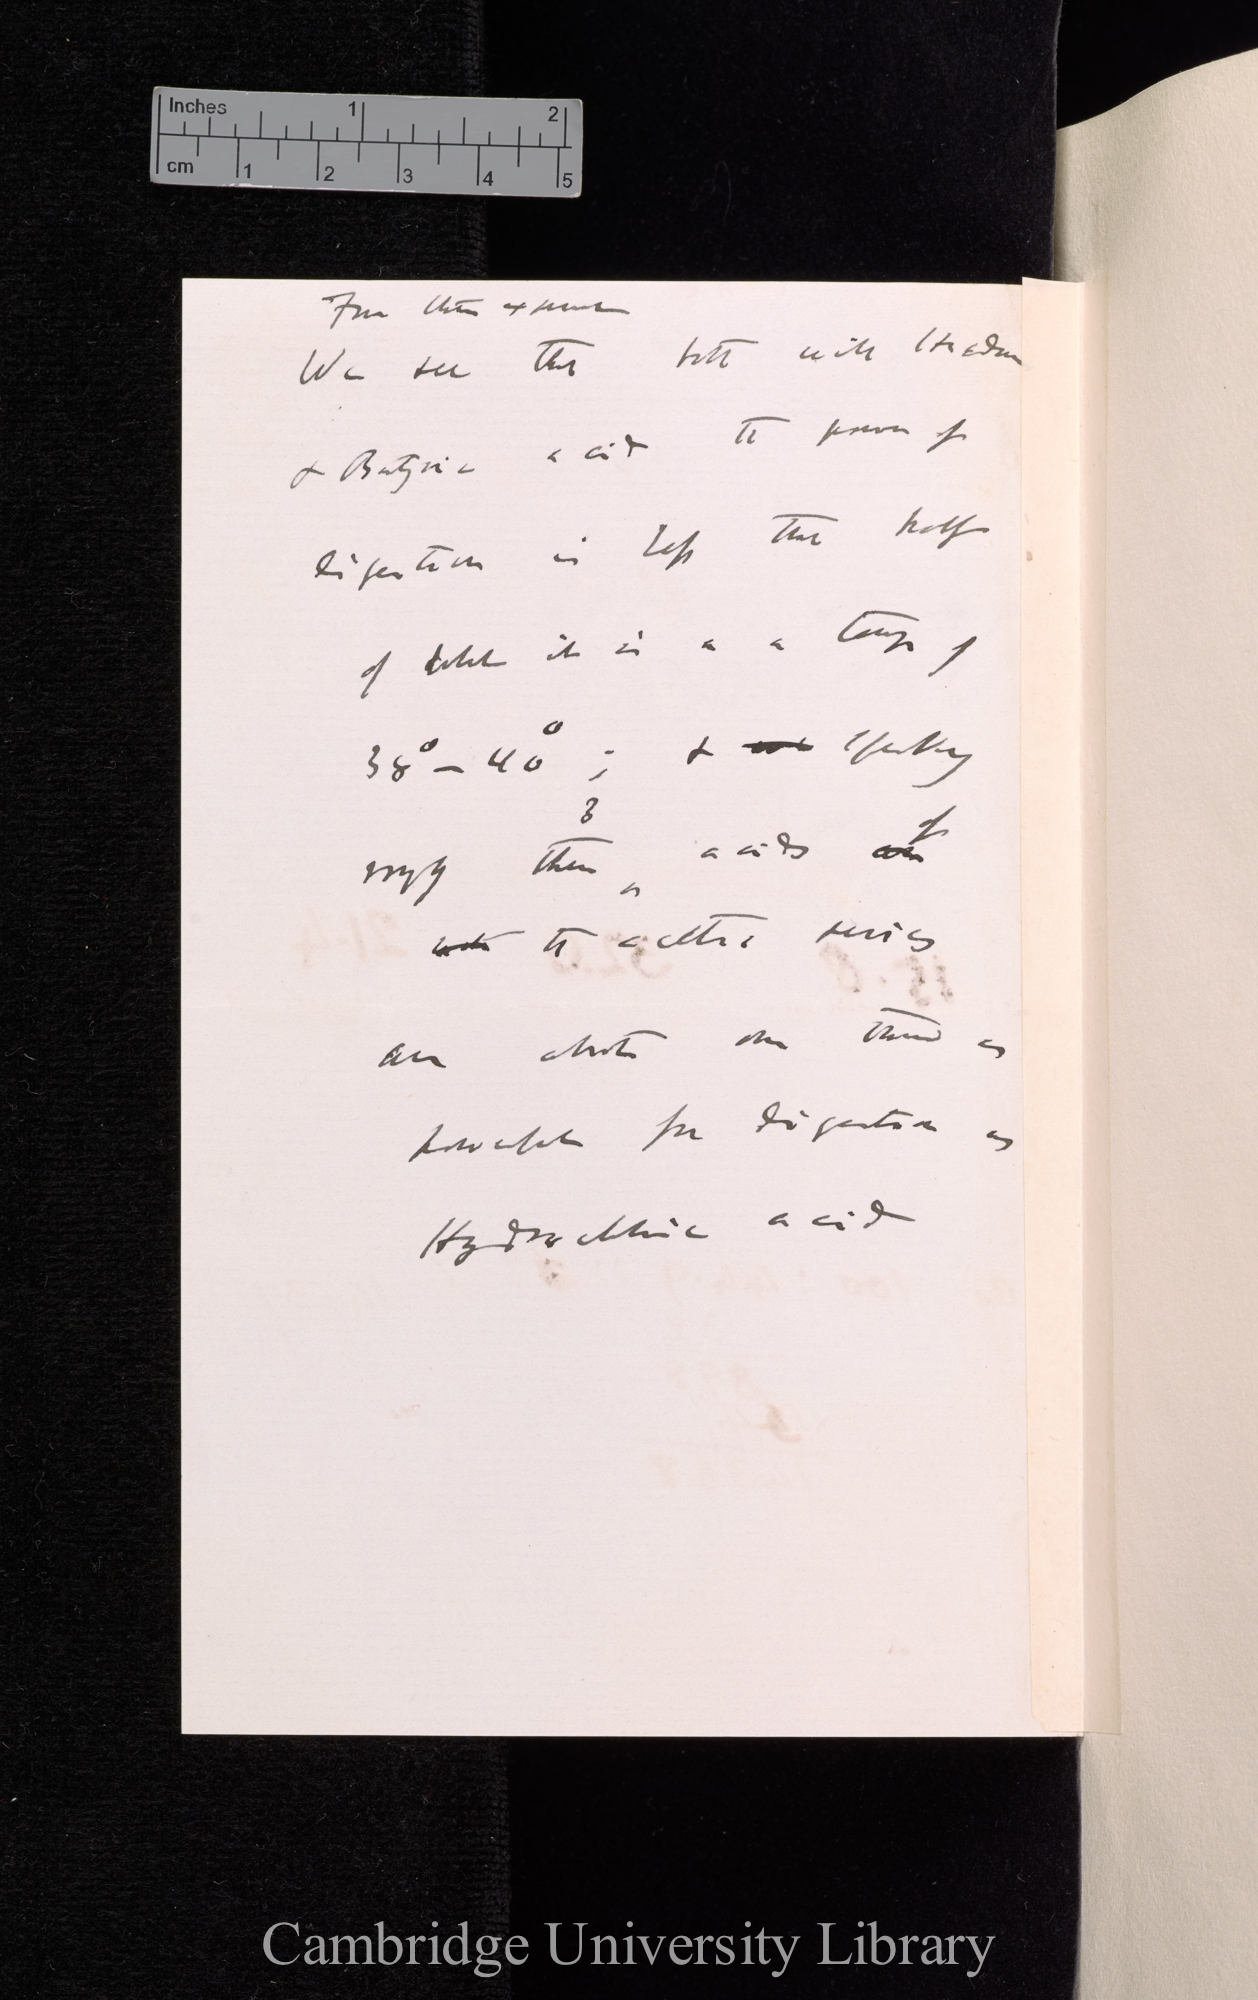 Inches 1 2
cm 1 2 3 4 5
From these experiments
We see that both with Hydroc
& Butyric acid the power of
digestion is less than half
of what it is at a temp of
38° – 40° ; & speaking
3
roughly these acids of
the acetic series
are about one third as
powerful for digestion as
Hydrochloric acid
Cambridge University Library